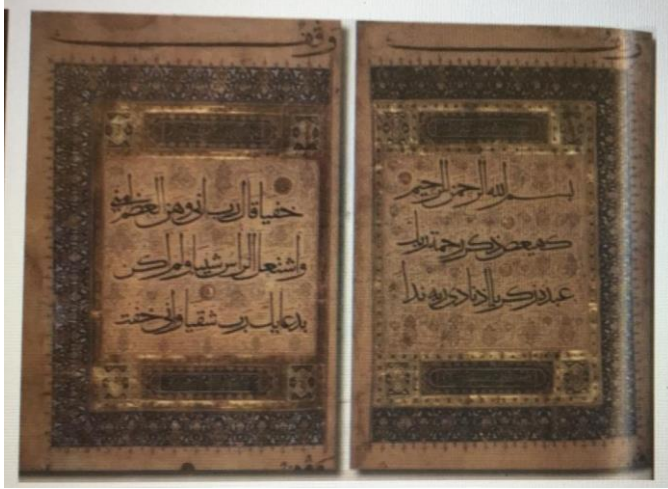 وقف
بسم الله الرحمن الرحيم
كهيعص ذكر رحمة ربك
عبده زكريا إذ نادى ربه ندا
وقف
خفيا قال رب إني وهن العظم مني
واشتعل الرأس شيبا ولم أكن
بدعائك رب شقيا وإني خفت